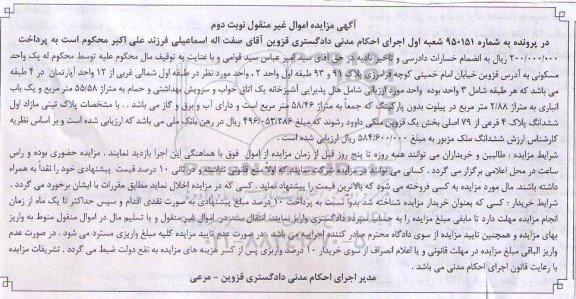 آگهی مزایده اموال غیر منقول نوبت دوم
در پرونده به شماره ۹۵۰۱۵۱ شعبه اول اجرای احکام مدنی دادگستری قزوین آقای صفت اله اسماعیلی فرزند علی اکبر محکوم است به پرداخت
۲۰۰/۰۰۰/۰۰۰ ریال به انضمام خسارات دادرسی و تاخیر تادیه در حق آقای سید امیر عباس سید قوامی و با عنایت به توقیف مال محکوم علیه توسط محکوم له یک واحد
مسکونی به آدرس قزوین خیابان امام خمینی کوچه فرامرزی پلاک ۹۱ و ۹۳ طبقه اول واحد ۲ ، واحد مورد نظر در طبقه اول شمالی غربی از ۱۲ واحد آپارتمان در ۴ طبقه
می باشد که هر طبقه شامل ۳ واحد بوده واحد مورد ارزیابی شامل هال پذیرایی آشپزخانه یک اتاق خواب و سرویس بهداشتی و حمام به متراژ ۵۵/۵۸ متر مربع و یک باب
انباری به متراژ ۲/۸۸ متر مربع در پیلوت بدون پارکینگ که جمعاً به متراژ ۵۸/۴۶ متر مربع است و دارای آب و برق و گاز می باشد . . با مشخصات پلاک ثبتی مازاد اول
ششدانگ پلاک ۴ فرعی از ۷۹ اصلی بخش یک قزوین ملکی داوود رشوند که مبلغ ۴۹۶/۰۵۳/۲۸۶ ریال در رهن بانک ملی می باشد که ارزیابی شده است و بر اساس نظریه
کارشناس ارزش ششدانگ ملک مزبور به مبلغ ۵۸۴/۶۰۰/۰۰۰ ریال ارزیابی شده است .
شرایط مزایده : طالبین و خریداران می توانند همه روزه تا پنج روز قبل از زمان مزایده از اموال فوق با هماهنگی این اجرا بازدید نمایند . مزایده حضوری بوده و راس
ساعت در محل اعلامی برگزار می گردد . کسانی می توانند در مزایده شرکت نمایند که اولاً منع قانونی نداشته و در ثانی ۱۰ درصد قیمت پیشنهادی خود را نقداً به همراه
داشته باشند. مال مورد مزایده به کسی فروخته می شود که بالاترین قیمت را پیشنهاد نماید . کسی که در مزایده اخلال نماید مطابق مقررات با ایشان برخورد می گردد .
شرایط خریدار : کسی که بعنوان خریدار مزایده شناخته شد بدواً نسبت به پرداخت ۱۰ درصد مبلغ پیشنهادی به صورت نقدی اقدام و سپس حداکثر تا یک ماه از زمان
انجام مزایده مهلت دارد تا مابقی مبلغ مزایده را به حساب سپرده دادگستری واریز نمایند. انتقال سند در اموال غیر منقول و یا تسلیم مال در اموال منقول منوط به واریز
بهای مزایده و همچنین تایید مزایده از سوی دادگاه محترم صادر کننده اجراییه می باشد . در صورت عدم تایید مزایده کلیه مبلغ واریزی مسترد می شود . در صورت عدم
واریز الباقی مبلغ مزایده در مهلت قانونی و یا اعلام انصراف از سوی خریدار ۱۰ درصد واریزی پس از کسر هزینه های مزایده به نفع دولت ضبط می گردد . تشریفات مزایده
با رعایت قانون اجرای احکام مدنی می باشد .
مدیر اجرای احکام مدنی دادگستری قزوین - مرعی